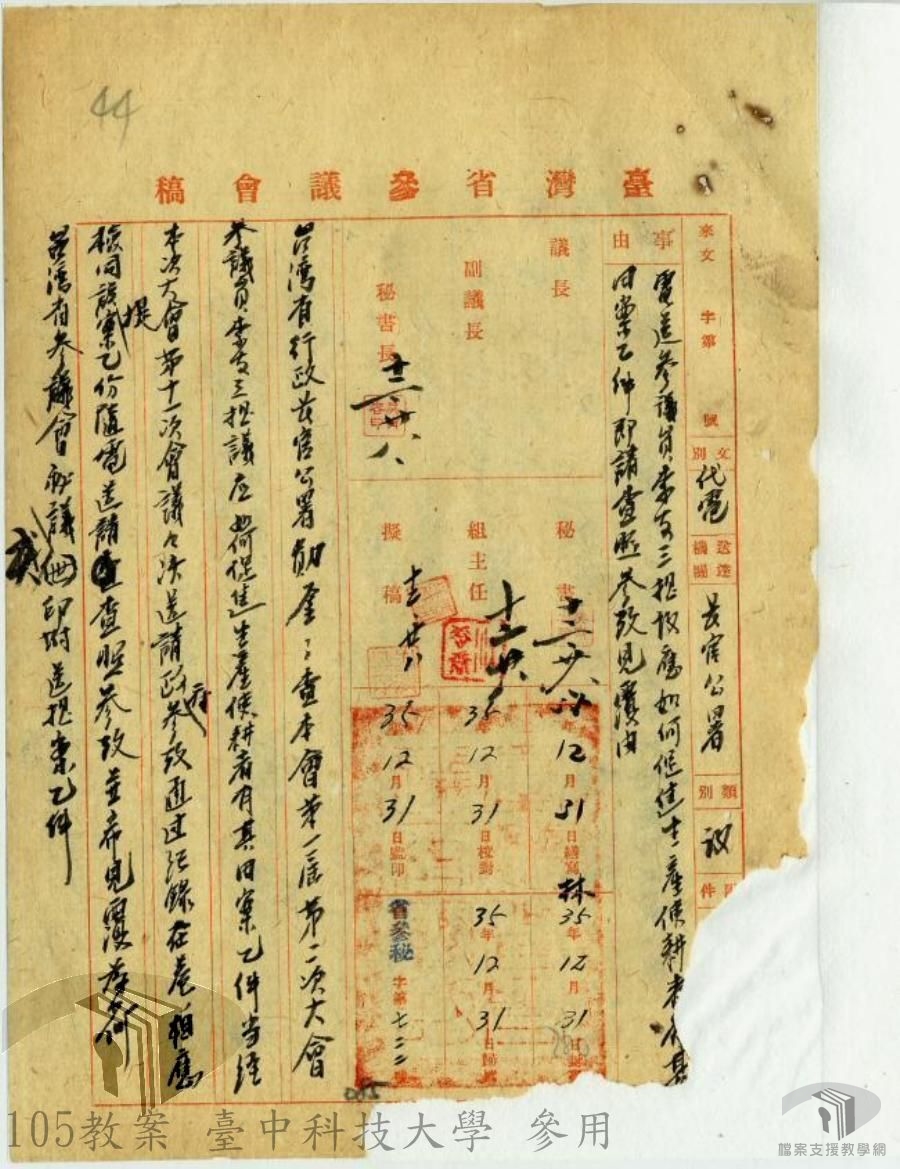 44
臺灣省參議會稿
來文 字第 號
文別 代電
送達機關 長官公署
類別 議
件
事由 電送參議員李友三提議應如何促進生產使耕者有其
田案乙件即請查照參攷見復由
議長
副議長
秘書長 十二、廿八
秘書 十二、廿八
組主任 十二、廿八
擬稿 十二、廿八
35 12月31日繕寫 林
35 12月31日校對
35 12月31日監印
35年12月31日
35年12月31日歸檔
省參秘字第七二二號
台灣省行政長官公署勛鑒:查本會第一屆第二次大會
參議員李友三提議应如何促進生產使耕者有其田案乙件当經
本次大會第十一次會議々決送請政府參攷通过紀錄在卷、相應
檢同該提案乙份隨電送請查照參攷並希見復為荷
台灣省參議會 秘議 印附送提案乙件
105教案 臺中科技大學 參用
檔案支援教學網